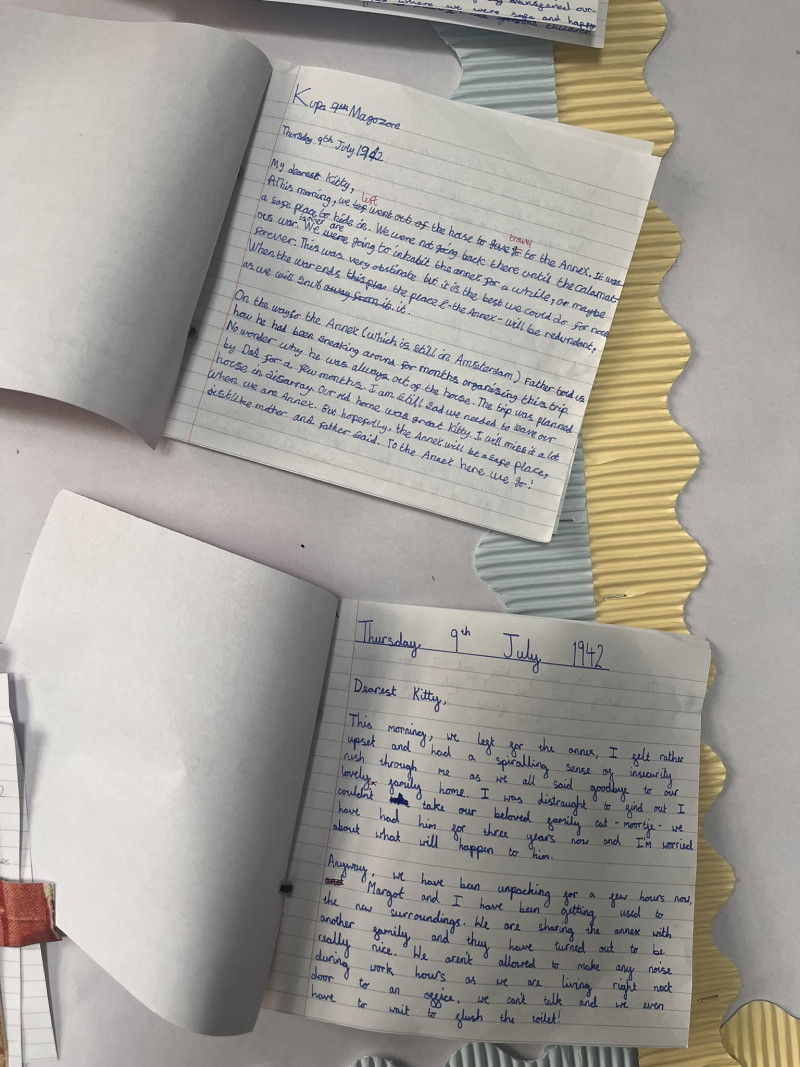 where we were safe and happy
Kupa Magozore
Thursday 9th July 1942
My dearest Kitty,
left
AThis morning, we lef went out of the house to give go to the Annex. It was
travel
a safe place to hide in. We were not going back there until the calamat-
ous war. We were going to inhabit the annex for a while, or maybe
are
forever. This was very obstinate but it is the best we could do for now.
When the war ends this plan the place - the Annex - will be redundant,
as we will snub away from it. it.
On the way to the Annex (which is still in Amsterdam) Father told us
how he had been sneaking around for months organising this trip.
No wonder why he was always out of the house. The trip was planned
by Dad for a few months. I am still sad we needed to leave our
house in disarray. Our old home was great Kitty. I will miss it a lot
when we are Annex. But hopefully, the Annex will be a safe place,
just like mother and father said. To the Annex here we go!
Thursday 9th July 1942
Dearest Kitty,
This morning, we left for the annex, I felt rather
upset and had a spiralling sense of insecurity
rush through me as we all said goodbye to our
lovely family home. I was distraught to find out I
couldnt take our beloved family cat - moortje - we
have had him for three years now and I'm worried
about what will happen to him.
Anyway, we have been unpacking for a few hours now,
and Margot and I have been getting used to
the new surroundings. We are sharing the annex with
another family and they have turned out to be
really nice. We aren't allowed to make any noise
during work hours as we are living right next
door to an office, we can't talk and we even
have to wait to flush the toilet!